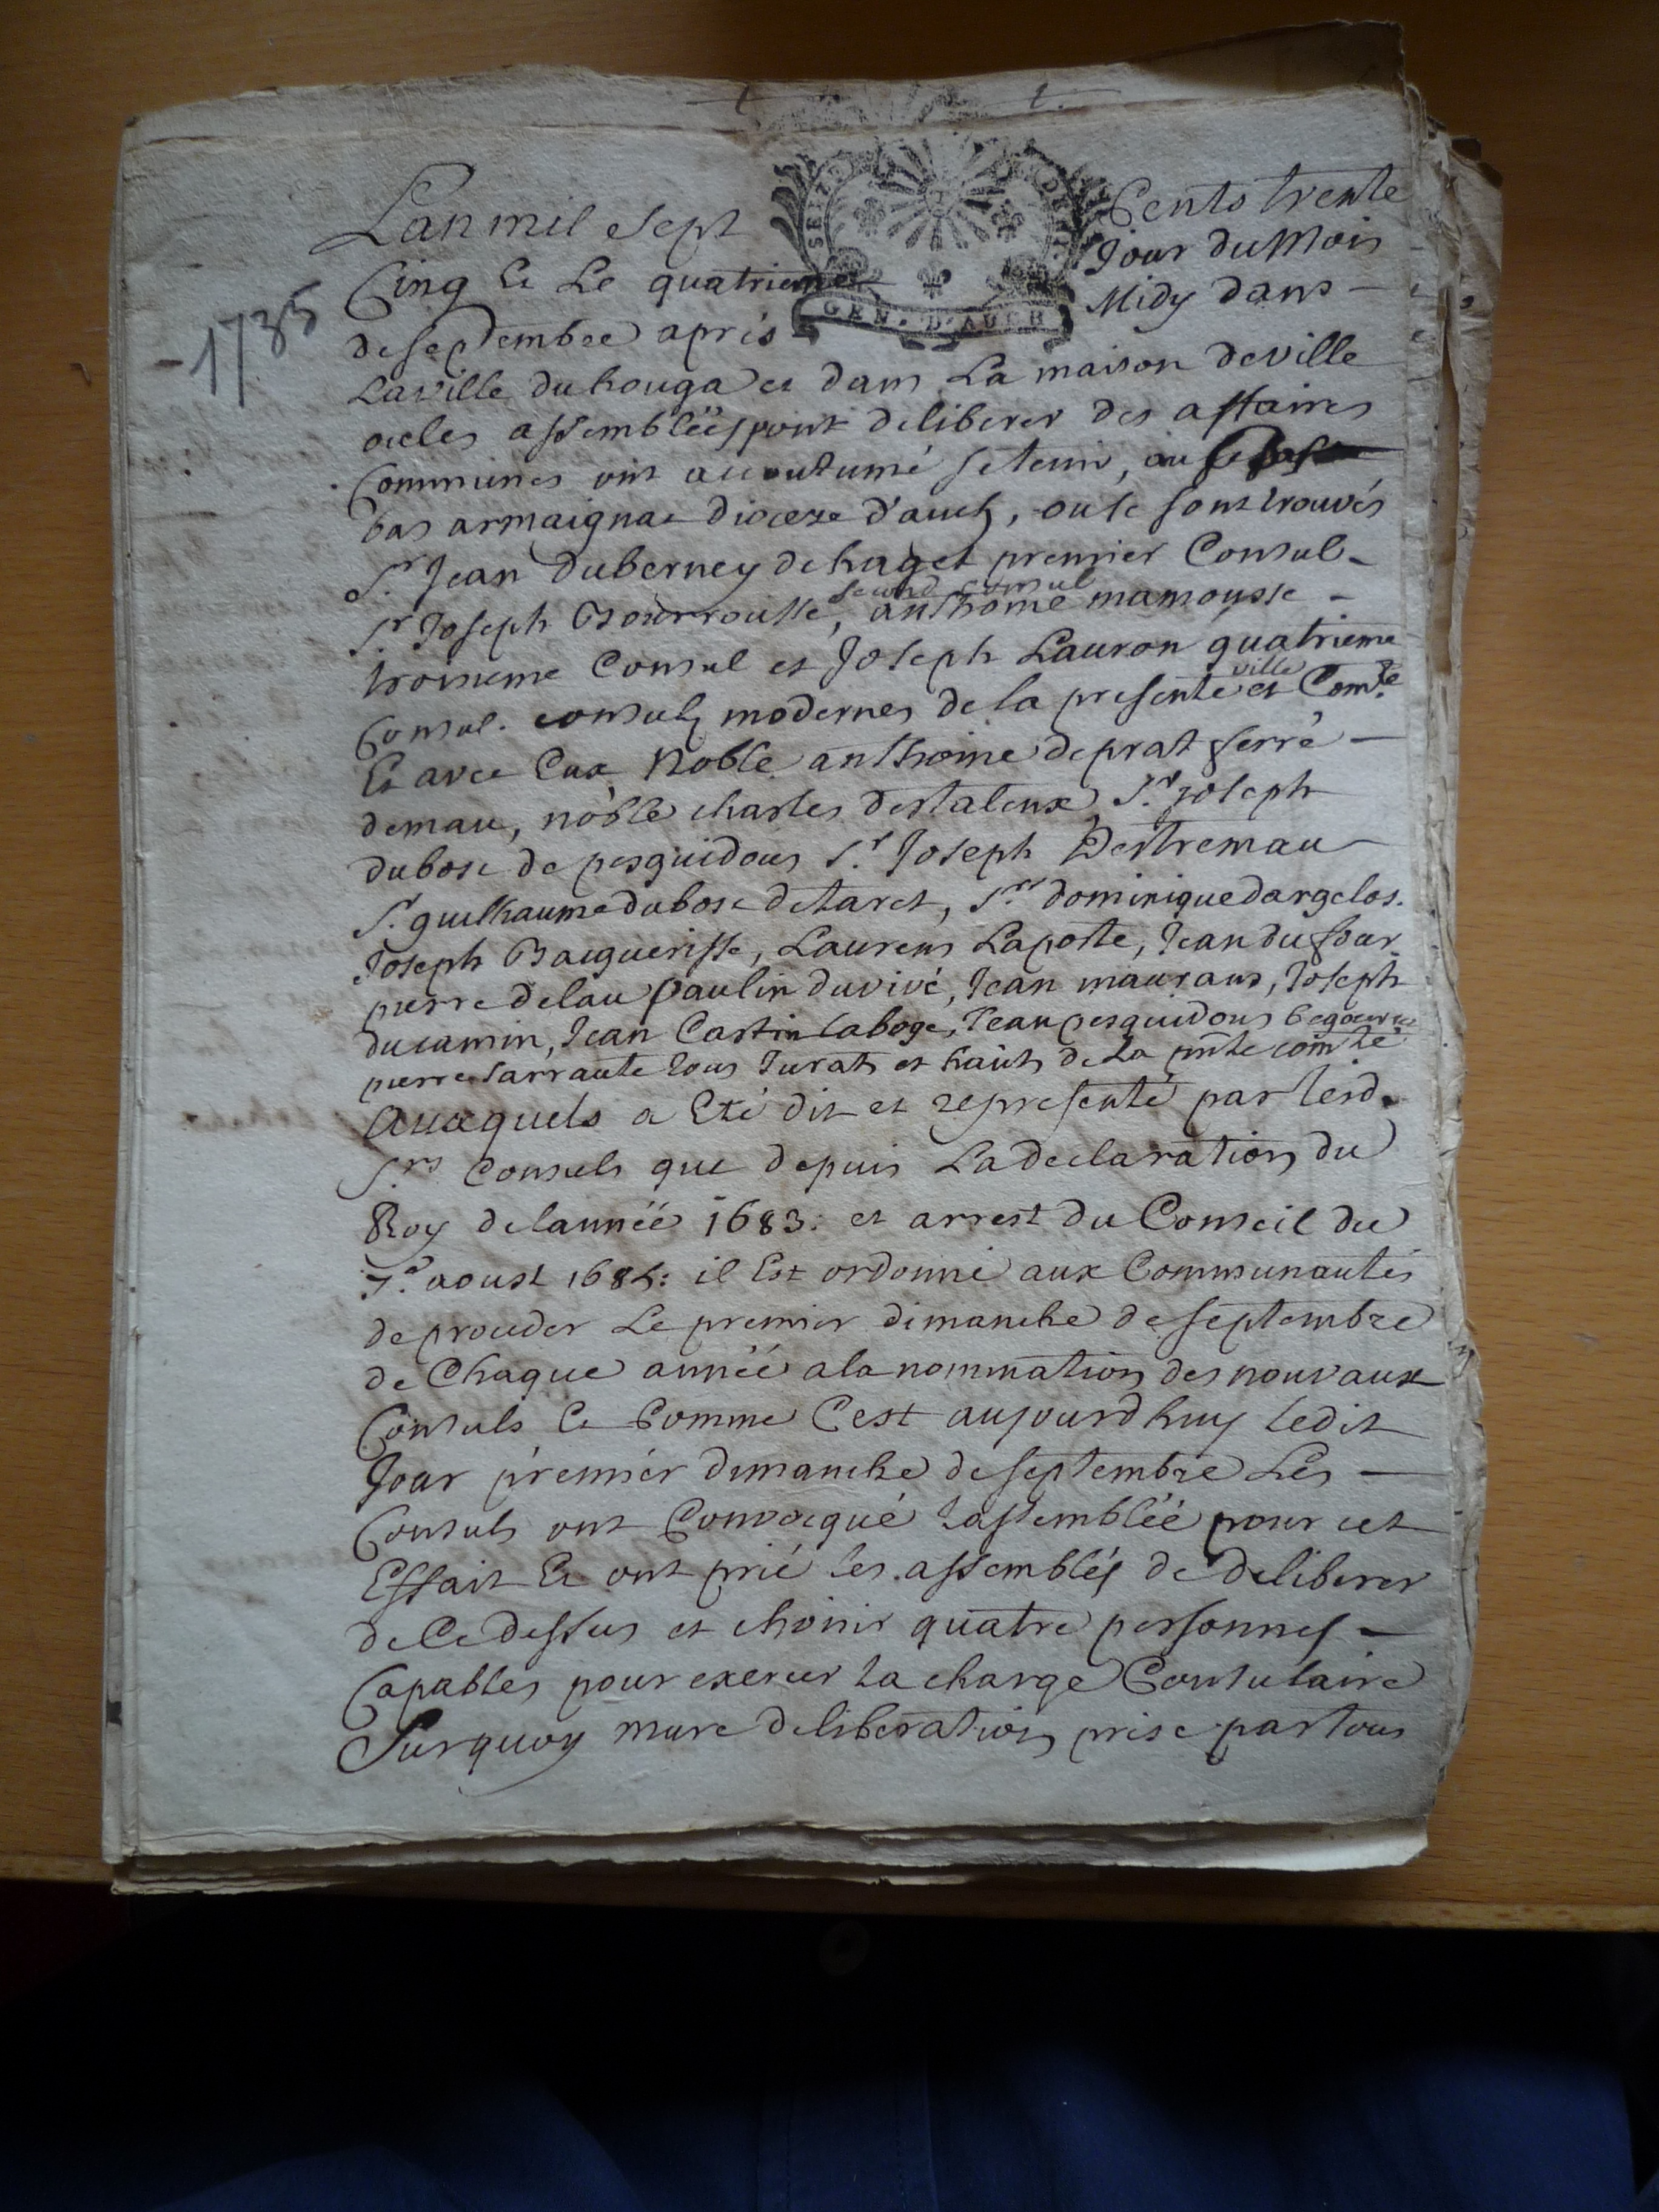 Lan mil Sept Cents trente
Cinq & Le quatrieme Jour du Mois
de septembre aprés Midy dans
GEN. D'AUCH
1735
La ville du houga et dans La maison de ville
ou les assembléés pour deliberer des affaires
Communes ont acoutumé se tenir, au
bas armaignac dioceze d'auch, ou se sont trouvés
Sr. Jean duberney de haget premier Consul
second consul
Sr Joseph Bourrousse, anthoine mamousse
troisieme Consul et Joseph Lauron quatrieme
ville
Consul. consuls modernes de la presente et Comte.
Et avec Eux Noble anthoine de prat ferré
de mau, noble charles destaleux, Sr. Joseph
dubosc de pesquidous Sr. Joseph Destremau
Sr. guilhaume dubosc detaret, Sr. dominique dargelos.
Joseph Baiguerisse, Laurens Laposte, Jean dufour
pierre delau paulin duvivé, Jean maurans, Joseph
ducamin, Jean Castin laboge, Jean pesquidous
pierre Sarraute tous Jurats et haûts de La pnte comté
Auxquels a Eté dit et representé par lesd.
Srs Consuls que depuis La declaration du
Roy de lannéé 1683: et arrest du Conseil du
7e. aoust 1684: il Est ordonné aux Communautés
de proceder Le premier dimanche de septembre
de Chaque annéé a la nommination des nouvaux
Consuls Et Comme C'est aujourdhuy ledit
Jour premier dimanche de septembre Les
Consuls ont Convocqué lassembléé pour cet
Effait Et ont prié les assemblés de deliberer
de Ce dessus et choisir quatre personnes
Capables pour exercer la charge Consulaire
Surquoy mure deliberation prise par tous